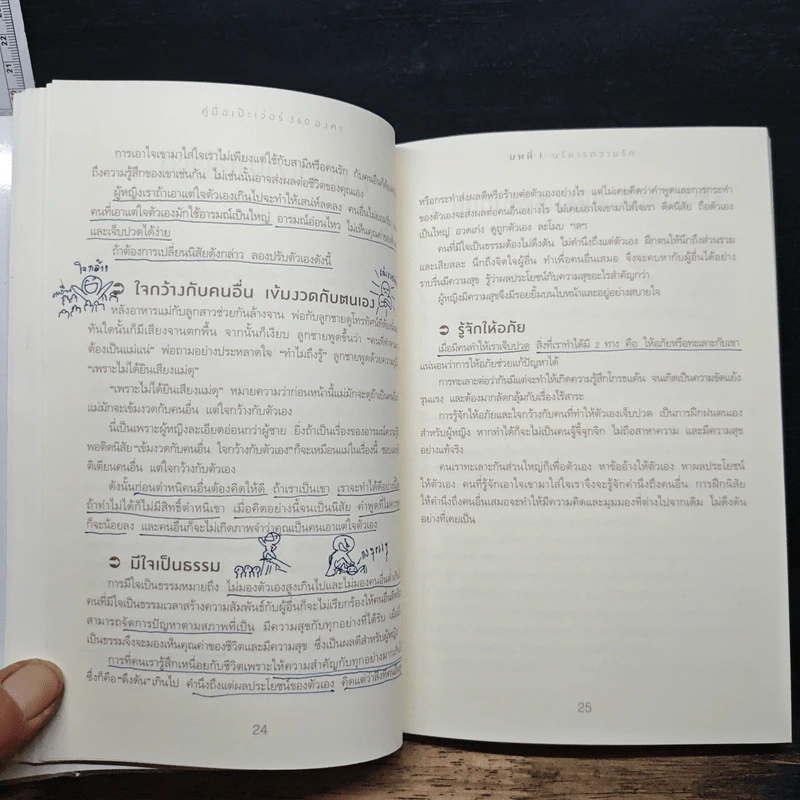 คู่มือเป๊ะเว่อร์ 360 องศา
การเอาใจเขามาใส่ใจเราไม่เพียงแต่ใช้กับสามีหรือคนรัก กับคนอื่นก็ต้อง
ถึงความรู้สึกของเขาเช่นกัน ไม่เช่นนั้นอาจส่งผลต่อชีวิตของคุณเอง
ผู้หญิงเราถ้าเอาแต่ใจตัวเองเกินไปจะทำให้เสน่ห์ลดลง คนอื่นไม่ยอมรับ
คนที่เอาแต่ใจตัวมักใช้อารมณ์เป็นใหญ่ อารมณ์อ่อนไหว ไม่เห็นคุณค่าของ
และเจ็บปวดได้ง่าย
ถ้าต้องการเปลี่ยนนิสัยดังกล่าว ลองปรับตัวเองดังนี้
ใจกว้าง
ใจกว้างกับคนอื่น เข้มงวดกับตนเอง
หลังอาหารแม่กับลูกสาวช่วยกันล้างจาน พ่อกับลูกชายดูโทรทัศน์ที่ห้อง
ทันใดนั้นก็มีเสียงจานตกพื้น จากนั้นก็เงียบ ลูกชายพูดขึ้นว่า "คนที่ทำจาน
ต้องเป็นแม่แน่" พ่อถามอย่างประหลาดใจ "ทำไมถึงรู้" ลูกชายพูดด้วยความ
"เพราะไม่ได้ยินเสียงแม่ดุ"
"เพราะไม่ได้ยินเสียงแม่ดุ" หมายความว่าก่อนหน้านี้แม่มักจะดุถ้าเป็นคนอื่น
แม่มักจะเข้มงวดกับคนอื่น แต่ใจกว้างกับตัวเอง
นี่เป็นเพราะผู้หญิงละเอียดอ่อนกว่าผู้ชาย ยิ่งถ้าเป็นเรื่องของอารมณ์
พอติดนิสัย "เข้มงวดกับคนอื่น ใจกว้างกับตัวเอง" ก็จะเหมือนแม่ในเรื่องนี้ ชอบ
ติเตียนคนอื่น แต่ใจกว้างกับตัวเอง
ดังนั้นก่อนตำหนิคนอื่นต้องคิดให้ดี ถ้าเราเป็นเขา เราจะทำได้ดีอย่าง
ถ้าทำไม่ได้ก็ไม่มีสิทธิ์ตำหนิเขา เมื่อคิดอย่างนี้จนเป็นนิสัย คำพูดที่ไม่
ก็จะน้อยลง และคนอื่นก็จะไม่เกิดภาพจำว่าคุณเป็นคนเอาแต่ใจตัวเอง
มีใจเป็นธรรม
การมีใจเป็นธรรมหมายถึง ไม่มองตัวเองสูงเกินไปและไม่มองคนอื่นต่ำ
คนที่มีใจเป็นธรรมเวลาสร้างความสัมพันธ์กับผู้อื่นก็จะไม่เรียกร้องให้คนอื่น
สามารถจัดการปัญหาตามสภาพที่เป็น มีความสุขกับทุกอย่างที่ได้รับ เมื่อ
เป็นธรรมจึงจะมองเห็นคุณค่าของชีวิตและมีความสุข ซึ่งเป็นผลดีสำหรับผู้หญิง
การที่คนเรารู้สึกเหนื่อยกับชีวิตเพราะให้ความสำคัญกับทุกอย่างมากเกิน
ซึ่งก็คือ "ดึงดัน" เกินไป คำนึงถึงแต่ผลประโยชน์ของตัวเอง คิดแต่ว่าสิ่งที่
24
บทที่ 1 บริหารความรัก
หรือกระทำส่งผลดีหรือร้ายต่อตัวเองอย่างไร แต่ไม่เคยคิดว่าคำพูดและการกระทำ
ของตัวเองจะส่งผลต่อคนอื่นอย่างไร ไม่เคยเอาใจเขามาใส่ใจเรา ติดนิสัย ถือตัวเอง
เป็นใหญ่ อวดเก่ง ดูถูกตัวเอง ละโมบ ฯลฯ
คนที่มีใจเป็นธรรมต้องไม่ดึงดัน ไม่คำนึงถึงแต่ตัวเอง ฝึกตนให้นึกถึงส่วนรวม
และเสียสละ นึกถึงจิตใจผู้อื่น ทำเพื่อคนอื่นเสมอ จึงจะคบหากับผู้อื่นได้อย่าง
ราบรื่นมีความสุข รู้ว่าผลประโยชน์กับความสุขอะไรสำคัญกว่า
ผู้หญิงมีความสุขจึงมีรอยยิ้มบนใบหน้าและอยู่อย่างสบายใจ
รู้จักให้อภัย
เมื่อมีคนทำให้เราเจ็บปวด สิ่งที่เราทำได้มี 2 ทาง คือ ให้อภัยหรือทะเลาะกับเขา
แน่นอนว่าการให้อภัยช่วยแก้ปัญหาได้
การทะเลาะต่อว่ากันมีแต่จะทำให้เกิดความรู้สึกโกรธแค้น จนเกิดเป็นความขัดแย้ง
รุนแรง และต้องมากลัดกลุ้มกับเรื่องไร้สาระ
การรู้จักให้อภัยและใจกว้างกับคนที่ทำให้ตัวเองเจ็บปวด เป็นการฝึกฝนตนเอง
สำหรับผู้หญิง หากทำได้ก็จะไม่เป็นคนจู้จี้จุกจิก ไม่ถือสาหาความ และมีความสุข
อย่างแท้จริง
คนเราทะเลาะกันส่วนใหญ่ก็เพื่อตัวเอง หาข้ออ้างให้ตัวเอง หาผลประโยชน์
ให้ตัวเอง คนที่รู้จักเอาใจเขามาใส่ใจเราจึงจะรู้จักคำนึงถึงคนอื่น การฝึกนิสัย
ให้คำนึงถึงคนอื่นเสมอจะทำให้มีความคิดและมุมมองที่ต่างไปจากเดิม ไม่ดึงดัน
อย่างที่เคยเป็น
25